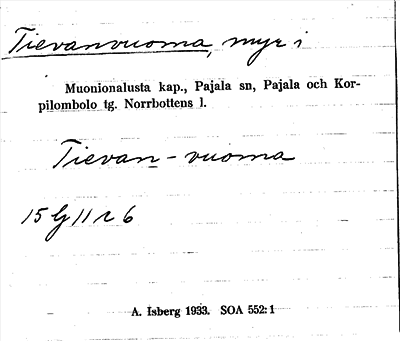 Tievanvuoma, myr i
Muonionalusta kap., Pajala sn, Pajala och Kor-
pilombolo tg. Norrbottens l.
Tievan-vuoma
15 G 11 r 6
A. Isberg 1933. SOA 552:1